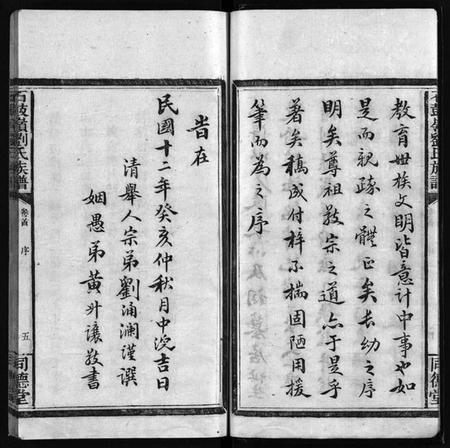 石鼓嶺劉氏族譜
教育世族文明皆意計中事也如
是而親疎之體正矣長幼之序
明矣尊祖敬宗之道亦于是乎
著矣稿成付梓不揣固陋用援
筆而為之序
同德堂
石鼓嶺劉氏族譜
卷首
序
五
同德堂
旹在
民國十二年癸亥仲秋月中浣吉日
清舉人宗弟劉涌瀾謹撰
姻愚弟黃升讓敬書